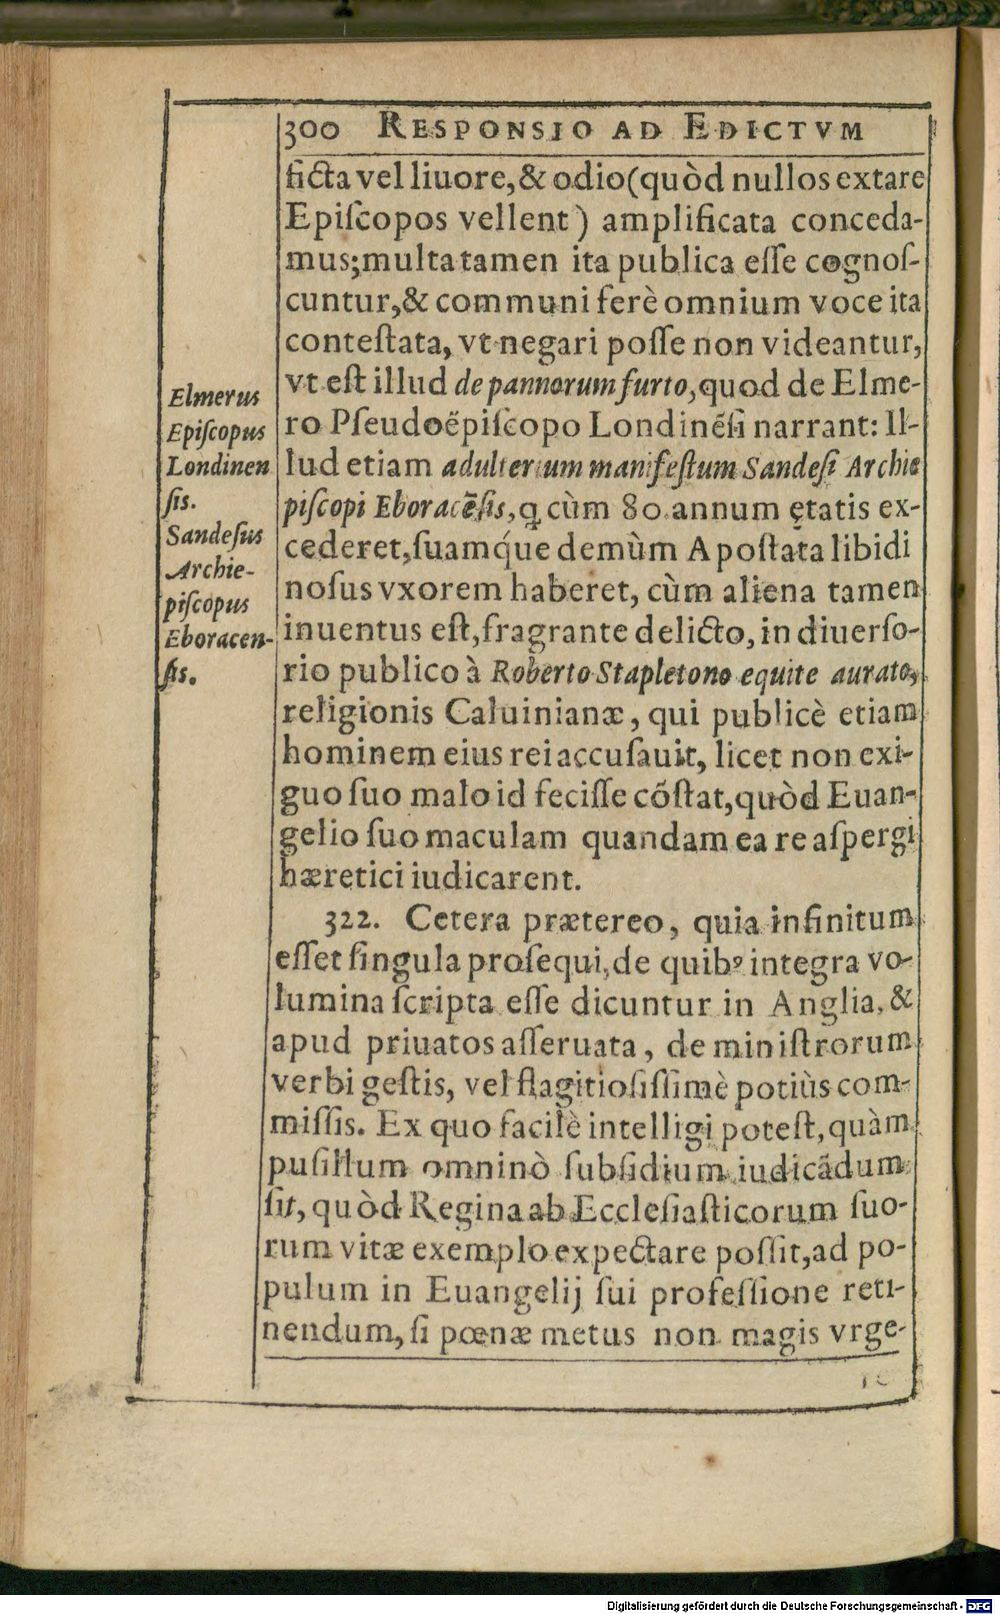 300 RESPONSIO AD EDICTVM
ficta vel liuore, & odio (quòd nullos extare
Epiſcopos vellent) amplificata conceda-
mus; multa tamen ita publica eſſe cognoſ-
cuntur, & communi ferè omnium voce ita
conteſtata, vt negari poſſe non videantur,
vt eſt illud de pannorum furto, quod de Elme-
ro Pſeudoëpiſcopo Londinẽſi narrant: Il-
lud etiam adulterium manifeſtum Sandeſi Archie
piſcopi Eboracẽſis, q cùm 80. annum ętatis ex-
cederet, ſuamq́ue demùm Apoſtata libidi
noſus vxorem haberet, cùm aliena tamen
inuentus eſt, fragrante delicto, in diuerſo-
rio publico à Roberto Stapletono equite aurato,
religionis Caluinianæ, qui publicè etiam
hominem eius rei accuſauit, licet non exi-
guo ſuo malo id feciſſe cõſtat, quòd Euan-
gelio ſuo maculam quandam ea re aſpergi
hæretici iudicarent.
322. Cetera prætereo, quia infinitum
eſſet ſingula proſequi, de quibꝰ integra vo-
lumina ſcripta eſſe dicuntur in Anglia, &
apud priuatos aſſeruata, de miniſtrorum
verbi geſtis, vel flagitioſiſſimè potiùs com-
miſſis. Ex quo facilè intelligi poteſt, quàm
puſillum omninò ſubſidium iudicãdum
ſit, quòd Regina ab Eccleſiaſticorum ſuo-
rum vitæ exemplo expectare poſſit, ad po-
pulum in Euangelij ſui profeſſione reti-
nendum, ſi pœnæ metus non magis vrge-
Elmerus
Epiſcopus
Londinen
ſis.
Sandeſus
Archie-
piſcopus
Eboracen-
ſis.
Digitalisierung gefördert durch die Deutsche Forschungsgemeinschaft - DFG